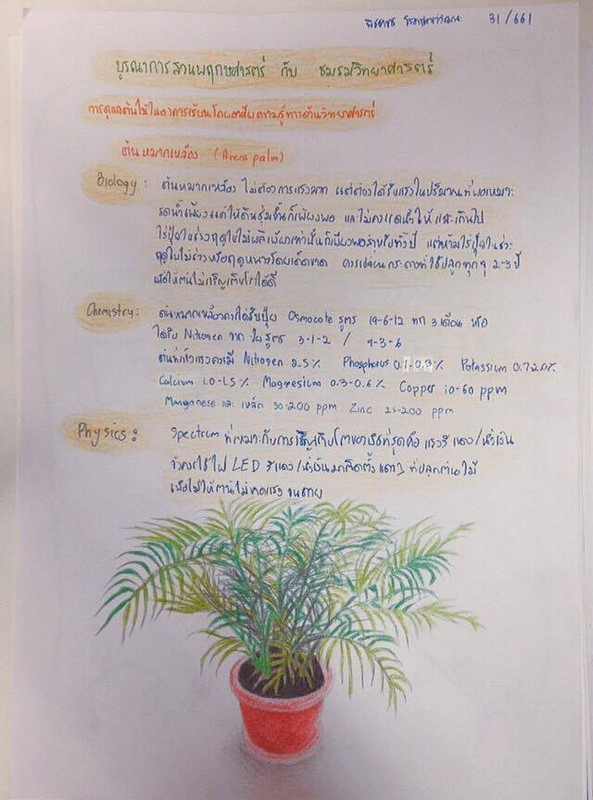 31/661
บูรณาการสวนพฤกษศาสตร์ กับ ชมรมวิทยาศาสตร์
การดูแลต้นไม้ในอาคารเรียนโดยอาศัยความรู้ทางด้านวิทยาศาสตร์
ต้นหมากเหลือง (Areca palm)
Biology : ต้นหมากเหลือง ไม่ต้องการแสงมาก แต่ต้องได้รับแสงในปริมาณที่พอเหมาะ
รดน้ำเพียงแค่ให้ดินชุ่มชื้นก็เพียงพอ และไม่ควรรดน้ำให้แฉะเกินไป
ใส่ปุ๋ยในช่วงฤดูใบไม้ผลิเพียงเท่านั้นก็เพียงพอสำหรับทั้งปี แต่ห้ามใส่ปุ๋ยในช่วง
ฤดูใบไม้ร่วงหรือฤดูหนาวโดยเด็ดขาด ควรเปลี่ยนกระถางที่ใช้ปลูกทุกๆ 2-3 ปี
เพื่อให้ต้นไม้เจริญเติบโตได้ดี
Chemistry : ต้นหมากเหลืองควรได้รับปุ๋ย Osmocote สูตร 19-6-12 ทุก 3 เดือน หรือ
ได้รับ Nitrogen จาก สูตร 3-1-2 / 9-3-6
ต้นที่แข็งแรงควรมี Nitrogen 2.5% Phosphorus Potassium
Calcium 1.0-1.5% Magnesium 0.3-0.6% Copper 10-60 ppm
Manganese และ เหล็ก 50-200 ppm Zinc 25-200 ppm
Physics : Spectrum ที่เหมาะกับการเจริญเติบโตของพืชที่สุดคือ แสงสี แดง/น้ำเงิน
จึงควรใช้ไฟ LED สีแดง/น้ำเงินมาติดตั้ง ที่ปลูกต้นไม้
เพื่อไม่ให้ต้นไม้ขาดแสง จนตาย